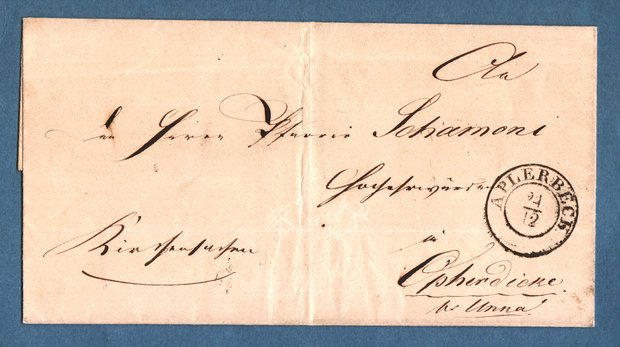 An
den Herrn Pfarrer Schamoni
Hochehrwürden
in
Opherdicke
br Unna
Kirchensachen
APLERBECK
12